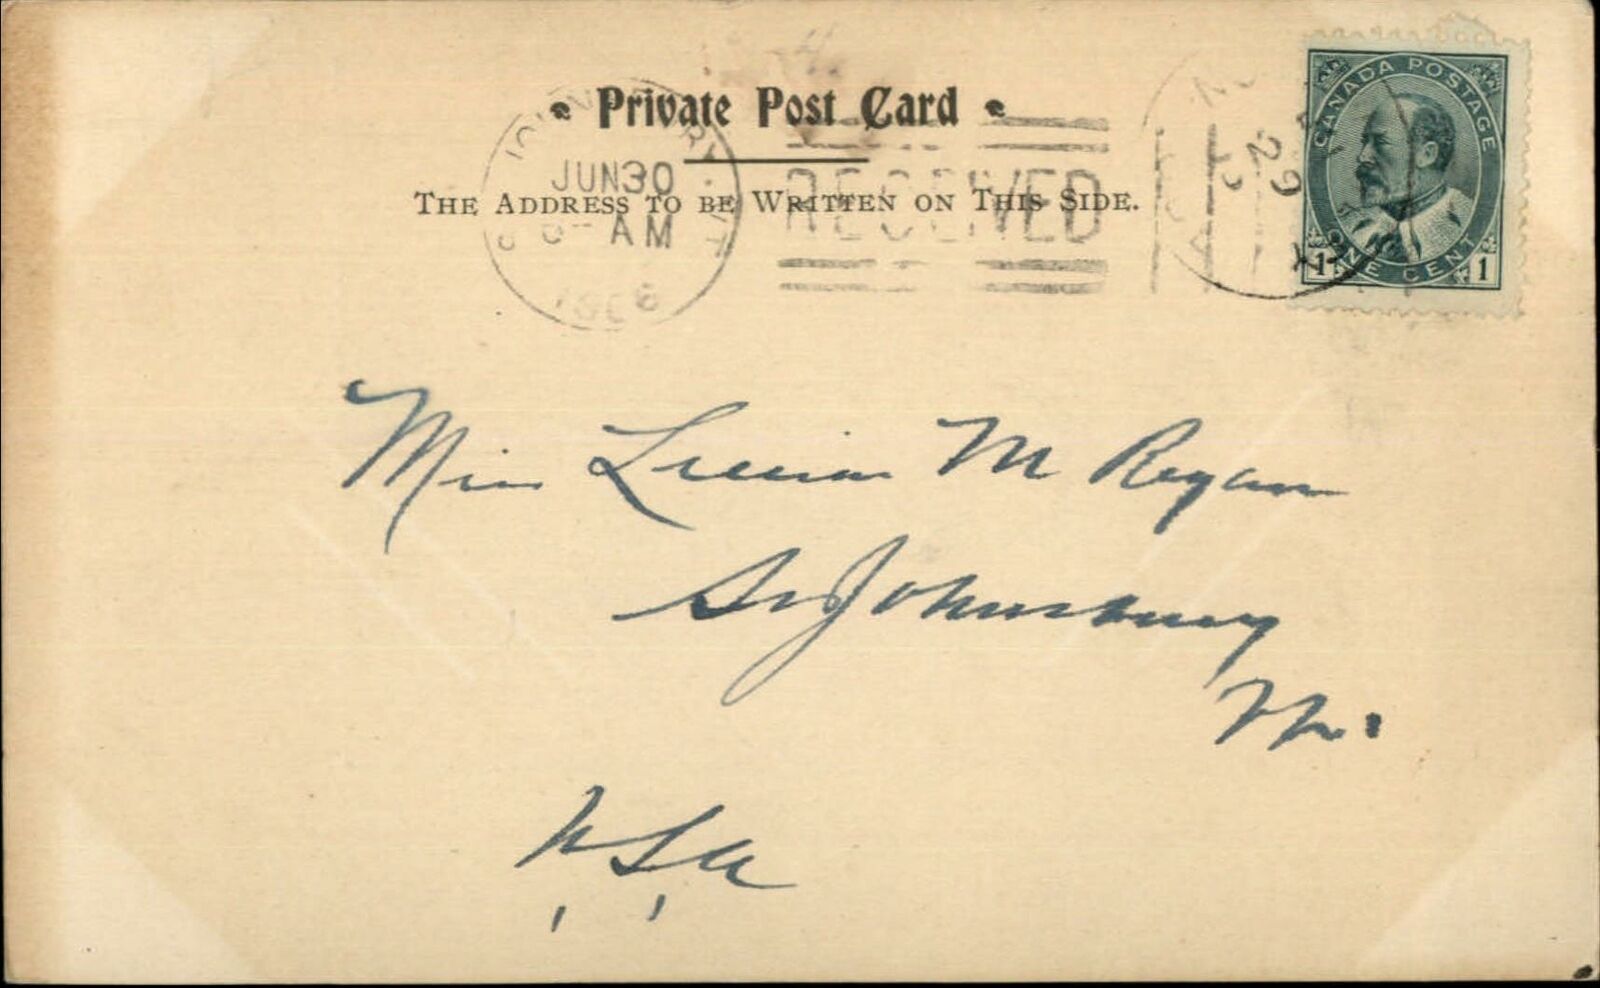 Private Post Card
THE ADDRESS TO BE WRITTEN ON THIS SIDE.
JUN 30
AM
1906
RECEIVED
CANADA POSTAGE
1 ONE CENT 1
29
Miss M Regan
St Johnsbury
Vt.
USA